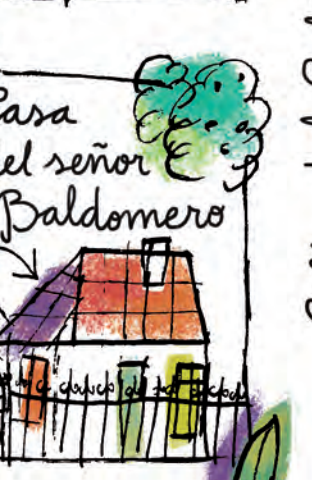 Casa
del señor
Baldomero